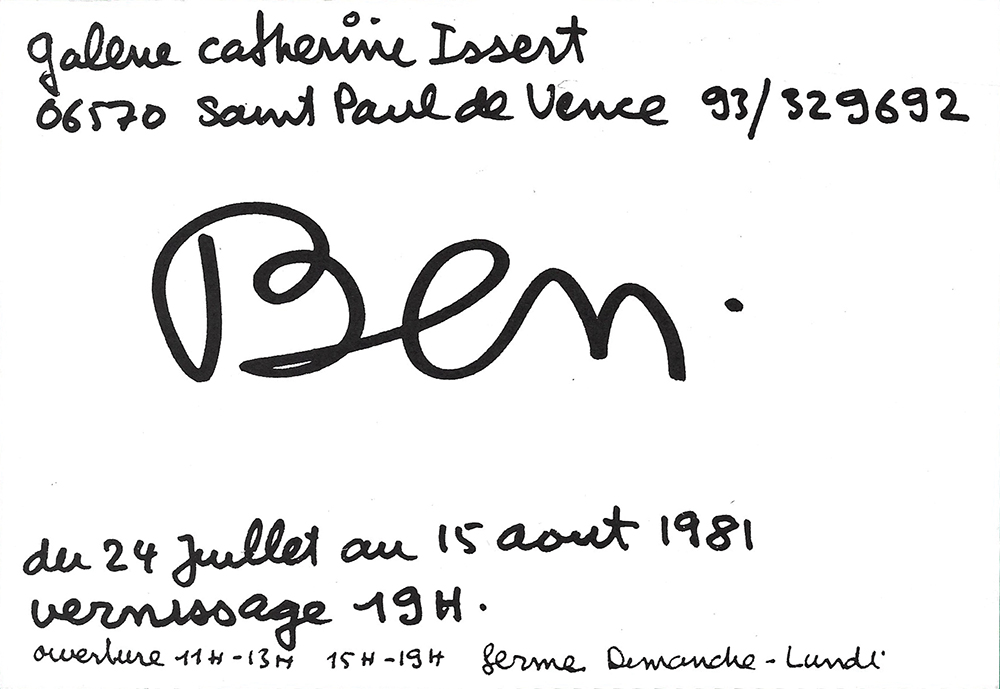 galerie catherine Issert
06570 Saint Paul de Vence 93/329692
Ben.
du 24 Juillet au 15 aout 1981
vernissage 19H.
ouverture 11H-13H 15H-19H ferme Dimanche-Lundi